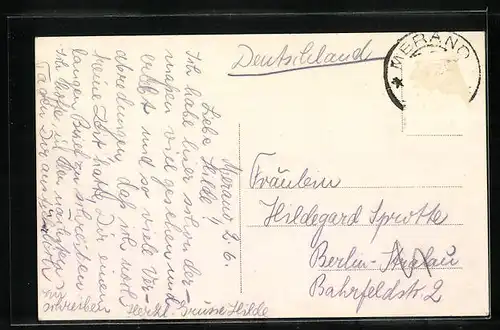 Deutschland
* MERANO
Meran, 2. 6.
Liebe Hilde!
Ich habe hier schon der-
maßen viel gesehen und
erlebt und so viele Ver-
abredungen, daß ich noch
keine Zeit hatte, Dir einen
langen Brief zu schreiben
Ich hoffe in den nächsten
Tagen Dir ausführlich
zu
schreiben Herzl. Grüsse Hilde
Fräulein
Hildegard Sprotte
Berlin-Stralau
Bahrfeldtstr. 2